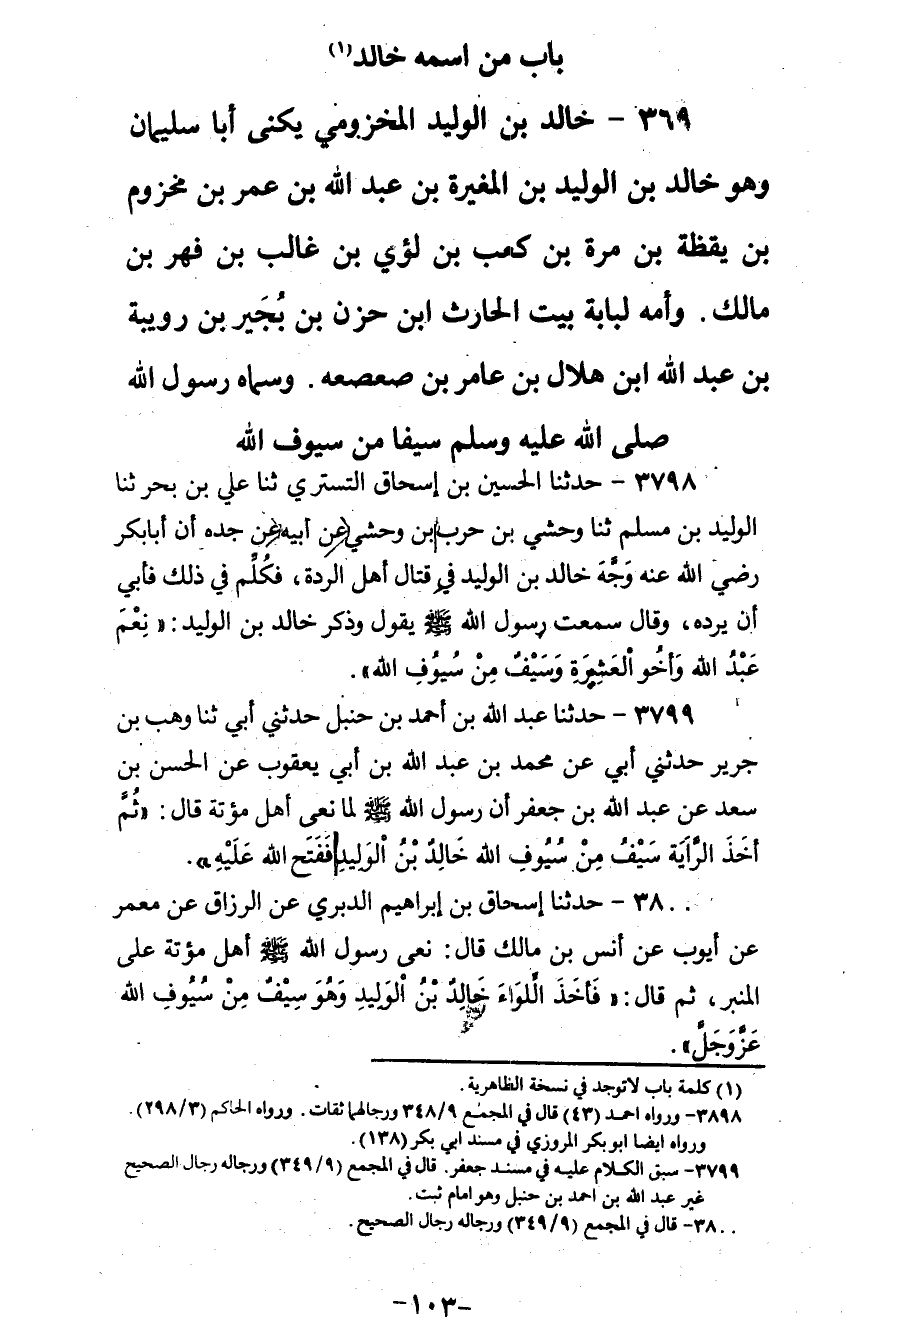 باب من اسمه خالد(١)
٣٦٩ - خالد بن الوليد المخزومي يكنى أبا سليمان
وهو خالد بن الوليد بن المغيرة بن عبد الله بن عمر بن مخزوم
بن يقظة بن مرة بن كعب بن لؤي بن غالب بن فهر بن
مالك . وأمه لبابة بيت الحارث ابن حزن بن بُجَير بن رويبة
بن عبد الله ابن هلال بن عامر بن صعصعه . وسماه رسول الله
صلى الله عليه وسلم سيفا من سيوف الله
٣٧٩٨ - حدثنا الحسين بن إسحاق التستري ثنا علي بن بحر ثنا
الوليد بن مسلم ثنا وحشي بن حرب بن وحشي عن أبيه عن جده أن أبابكر
رضي الله عنه وَجَّهَ خالد بن الوليد في قتال أهل الردة ، فكُلِّم في ذلك فأبي
أن يرده ، وقال سمعت رسول الله ﷺ يقول وذكر خالد بن الوليد : « نِعْمَ
عَبْدُ الله وَأخُو اْلعَشِيرَةِ وَسَيْفٌ مِنْ سُيوُفِ الله » .
٣٧٩٩ - حدثنا عبد الله بن أحمد بن حنبل حدثني أبي ثنا وهب بن
جرير حدثني أبي عن محمد بن عبد الله بن أبي يعقوب عن الحسن بن
سعد عن عبد الله بن جعفر أن رسول الله ﷺ لما نعى أهل مؤتة قال : «ثُمَّ
أخَذَ الرَّايَة سَيْفُ مِنْ سُيُوفِ الله خَالِدٌ بْنُ اْلوَلِيدِ فَفَتَح الله عَلَيْهِ » .
٣٨٠٠ - حدثنا إسحاق بن إبراهيم الدبري عن الرزاق عن معمر
عن أيوب عن أنس بن مالك قال : نعى رسول الله ﷺ أهل مؤتة على
المنبر ، ثم قال : « فَأخَذَ الَّلوَاءَ خَالِدٌ بْنُ اْلوَلِيدِ وَهُوَ سِيْفٌ مِنْ سُيُوفِ الله
عَزَّوَجَلَّ » .
(١) كلمة باب لاتوجد في نسخة الظاهرية .
٣٨٩٨- ورواه احمد (٤٣) قال في المجمع ٣٤٨/٩ ورجالهما ثقات . ورواه الحاكم (٢٩٨/٣) .
ورواه ايضا ابو بكر المروزي في مسند ابي بكر (١٣٨) .
٣٧٩٩- سبق الكلام عليه في مسند جعفر . قال في المجمع (٣٤٩/٩) ورجاله رجال الصحيح
غير عبد الله بن احمد بن حنبل وهو امام ثبت .
٣٨٠٠- قال في المجمع (٣٤٩/٩) ورجاله رجال الصحيح .
-١٠٣-